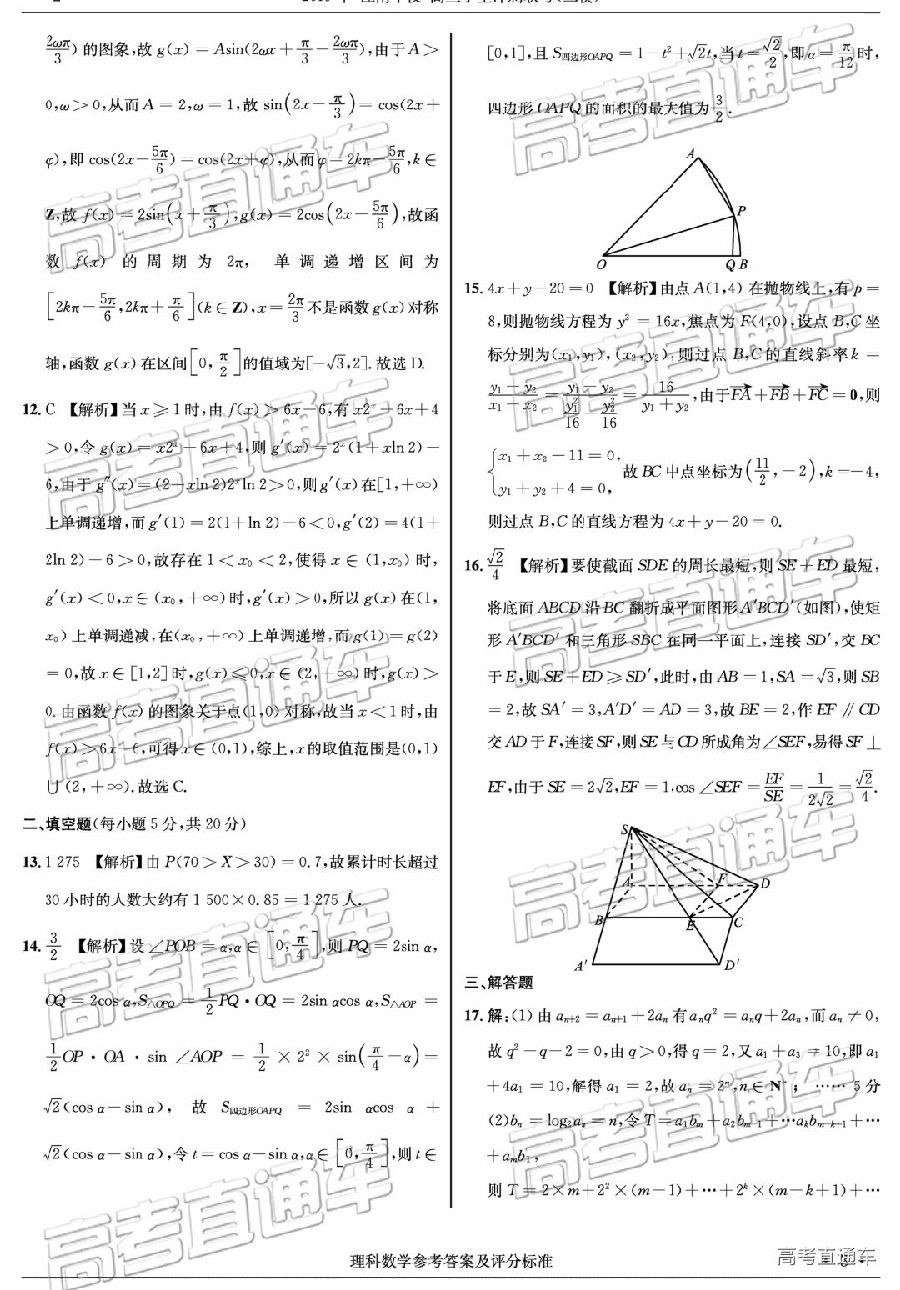 2ωπ/3) 的图象,故 g(x) = Asin(2ωx + π/3 − 2ωπ/3),由于 A >
0,ω > 0,从而 A = 2,ω = 1,故 sin(2x − π/3) = cos(2x +
φ),即 cos(2x − 5π/6) = cos(2x + φ),从而 φ = 2kπ − 5π/6,k ∈
Z,故 f(x) = 2sin(x + π/3),g(x) = 2cos(2x − 5π/6),故函
数 f(x) 的周期为 2π, 单调递增区间为
[2kπ − 5π/6,2kπ + π/6](k ∈ Z),x = 2π/3 不是函数 g(x) 对称
轴,函数 g(x) 在区间[0,π/2]的值域为[−√3,2]. 故选 D.
12. C 【解析】当 x ⩾ 1 时,由 f(x) > 6x − 6,有 x2ˣ − 6x + 4
> 0,令 g(x) = x2ˣ − 6x + 4,则 g′(x) = 2ˣ(1 + xln 2) −
6,由于 g″(x) = (2 + xln 2)2ˣln 2 > 0,则 g′(x) 在[1,+∞)
上单调递增,而 g′(1) = 2(1 + ln 2) − 6 < 0,g′(2) = 4(1 +
2ln 2) − 6 > 0,故存在 1 < x₀ < 2,使得 x ∈ (1,x₀) 时,
g′(x) < 0,x ∈ (x₀,+∞) 时,g′(x) > 0,所以 g(x) 在(1,
x₀) 上单调递减,在(x₀,+∞) 上单调递增,而 g(1) = g(2)
= 0,故 x ∈ [1,2] 时,g(x) ⩽ 0,x ∈ (2,+∞) 时,g(x) >
0. 由函数 f(x) 的图象关于点(1,0) 对称,故当 x < 1 时,由
f(x) > 6x − 6,可得 x ∈ (0,1),综上,x 的取值范围是(0,1)
∪ (2,+∞). 故选 C.
二、填空题(每小题 5 分,共 20 分)
13. 1 275 【解析】由 P(70 > X > 30) = 0.7,故累计时长超过
30 小时的人数大约有 1 500 × 0.85 = 1 275 人.
14. 3/2 【解析】设 ∠POB = α,α ∈ [0,π/4],则 PQ = 2sin α,
OQ = 2cos α,S△OPQ = 1/2 PQ · OQ = 2sin αcos α,S△AOP =
1/2 OP · OA · sin ∠AOP = 1/2 × 2² × sin(π/4 − α) =
√2(cos α − sin α), 故 S四边形OAPQ = 2sin αcos α +
√2(cos α − sin α),令 t = cos α − sin α,α ∈ [0,π/4],则 t ∈
[0,1],且 S四边形OAPQ = 1 − t² + √2t,当 t = √2/2,即 α = π/12 时,
四边形 OAPQ 的面积的最大值为 3/2.
A
P
O
Q B
15. 4x + y − 20 = 0 【解析】由点 A(1,4) 在抛物线上,有 p =
8,则抛物线方程为 y² = 16x,焦点为 F(4,0),设点 B,C 坐
标分别为(x₁,y₁),(x₂,y₂),则过点 B,C 的直线斜率 k =
(y₁ − y₂)/(x₁ − x₂) = (y₁ − y₂)/(y₁²/16 − y₂²/16) = 16/(y₁ + y₂),由于 FA + FB + FC = 0,则
{x₁ + x₂ − 11 = 0, y₁ + y₂ + 4 = 0, 故 BC 中点坐标为(11/2,−2),k = −4,
则过点 B,C 的直线方程为 4x + y − 20 = 0.
16. √2/4 【解析】要使截面 SDE 的周长最短,则 SE + ED 最短,
将底面 ABCD 沿 BC 翻折成平面图形 A′BCD′(如图),使矩
形 A′BCD′ 和三角形 SBC 在同一平面上,连接 SD′,交 BC
于 E,则 SE + ED ⩾ SD′,此时,由 AB = 1,SA = √3,则 SB
= 2,故 SA′ = 3,A′D′ = AD = 3,故 BE = 2,作 EF ∥ CD
交 AD 于 F,连接 SF,则 SE 与 CD 所成角为 ∠SEF,易得 SF ⊥
EF,由于 SE = 2√2,EF = 1,cos ∠SEF = EF/SE = 1/(2√2) = √2/4.
S
A F D
B E C
A′ D′
三、解答题
17. 解:(1) 由 aₙ₊₂ = aₙ₊₁ + 2aₙ 有 aₙq² = aₙq + 2aₙ,而 aₙ ≠ 0,
故 q² − q − 2 = 0,由 q > 0,得 q = 2,又 a₁ + a₃ = 10,即 a₁
+ 4a₁ = 10,解得 a₁ = 2,故 aₙ = 2ⁿ,n ∈ N*; …… 5 分
(2)bₙ = log₂aₙ = n,令 T = a₁bₘ + a₂bₘ₋₁ + …aₖbₘ₋ₖ₊₁ + …
+ aₘb₁,
则 T = 2 × m + 2² × (m − 1) + … + 2ᵏ × (m − k + 1) + …
理科数学参考答案及评分标准
高考直通车